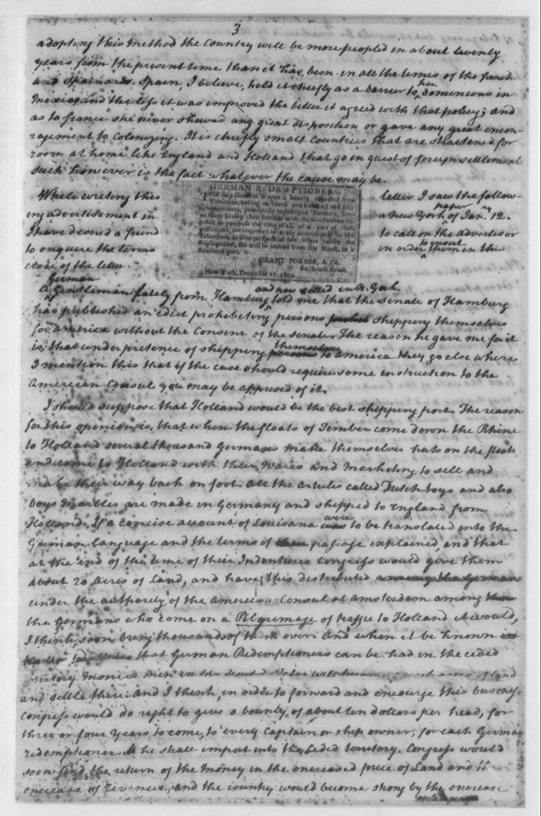 3
adopting this Method the Country will be more peopled in about twenty
years from the present time than it has been in all the times of the french
and Spaniards. Spain, I believe, held it chiefly as a barrier to her domenions in
Mexico, and the less it was improved the better it agreed with that policy; and
as to france she never shewed any great disposition or gave any great encou-
ragement to Colonizing. It is chiefly small Countries that are straitened for
room at home like England and Holland that go in quest of foreign settlements
Such however is the fact whatever the cause may be.
While writing this letter I saw the follow-
ing advertisement in a New York paper of Jan. 12.
I have desired a friend to call on the advertisor
to enquire the terms in order to quote them in the
close of the letter.
GERMAN REDEMPTIONERS.
GRANT FORBES, & Co.
New-York, December 27, 1804.
A German Gentleman lately from Hamburg and now settled in N. York told me that the Senate of Hamburg
has published an edict prohibiting persons shipping themselves
for America without the Consent of the Senate. The reason he gave me for it
is that under pretence of shipping themselves to America they go else where
I mention this that if the case should require some instruction to the
American Consul you may be apprised of it.
I should suppose that Holland would be the best shipping port. The reason
for this opinion is, that when the floats of Timber come down the Rhine
to Holland several thousand Germans make themselves huts on the floats
and come to Holland with their Wares and Merchandize to sell and
make their way back on foot. All the articles called Dutch toys and also
boys Marbles are made in Germany and shipped to England from
Holland. If a concise account of Louisiana were to be translated into the
German Language and the terms of passage explained, and that
at the end of the time of their Indentures Congress would give them
about 20 Acres of Land, and have this distributed
under the authority of the American Consul at Amsterdam among
the Germans who come on a Pilgrimage of traffic to Holland it would,
I think, soon bring thousands of them over. And when it be known
that German Redemptioners can be had in the ceded
territory Monied Men in the
and settle there. And I think, in order to forward and encourage this business
Congress would do right to give a bounty, of about ten dollars per head, for
three or four Years to come, to every Captain or Ship owner, for each German
redemptioner he shall import into the ceded territory. Congress would
soon find the return of the Money in the encreased price of Land and the
encrease of revenue, and the country would become strong by the encrease